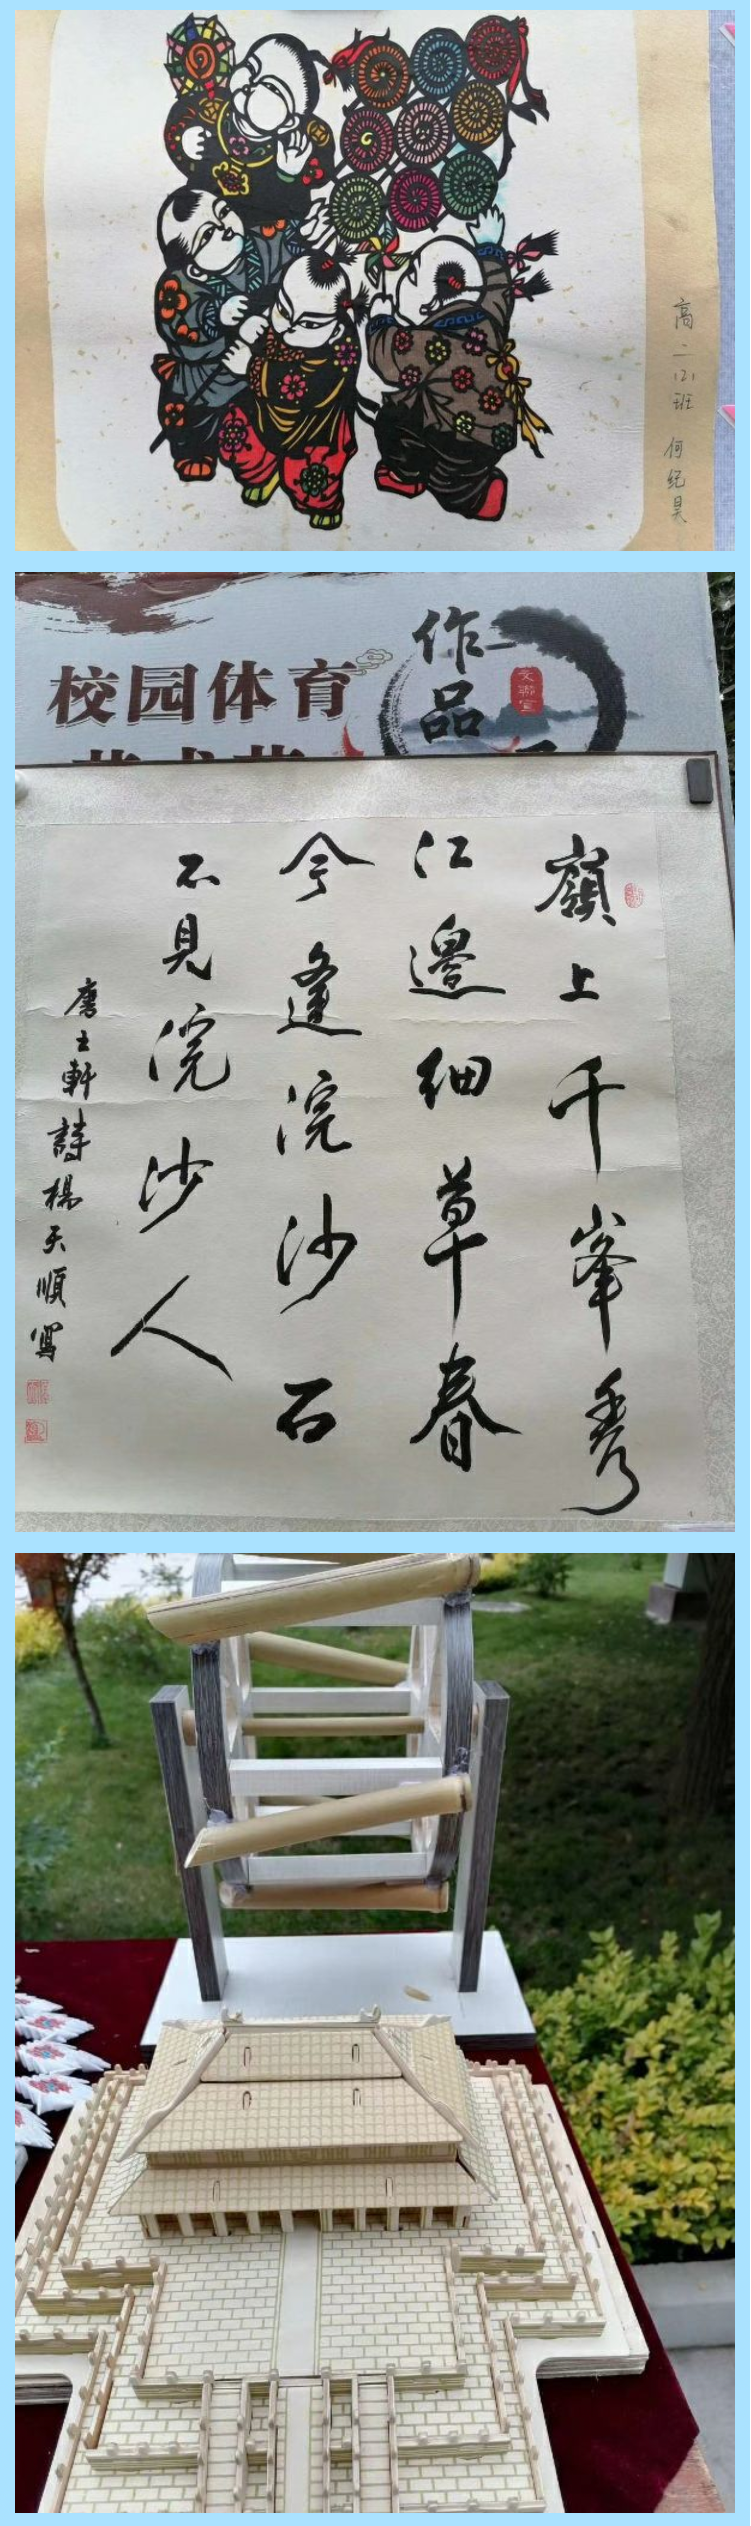 高二(2)班 何纪昊
校园体育
作品
嶺上千峯秀
江邊細草春
今逢浣沙石
不見浣沙人
唐王軒詩楊天順寫